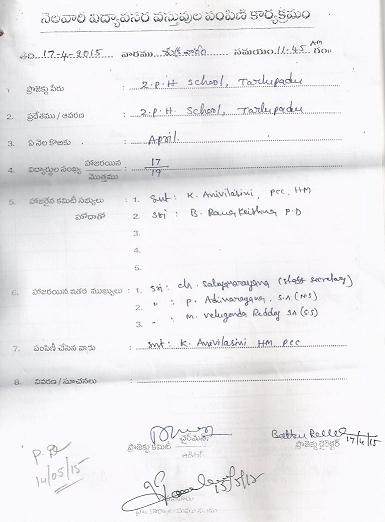 నెలవారి విద్యావసర వస్తువుల పంపిణీ కార్యక్రమం
తేది 17-4-2015 వారము శుక్రవారం సమయం 11.45 AM గం॥
1. ప్రాజెక్టు పేరు : Z.P.H School, Tarlupadu
2. ప్రదేశము / ఆవరణ : Z.P.H School, Tarlupadu
3. ఏ నెల కొఱకు : April.
4. విద్యార్థుల సంఖ్య హాజరయిన : 17
మొత్తము 19
5. హాజరైన కమిటీ సభ్యులు : 1. Smt: K. Anivilasini, PCC. HM
హోదాతో 2. Sri : B. Rama Krishna P.D
3.
4.
5.
6. హాజరయిన ఇతర ముఖ్యులు : 1. Sri: Ch. Satyanarayana (Staff Secretary)
2. " : P. Adinarayana, S.A (N.S)
3. " : M. Veligonda Reddy SA (S.S)
7. పంపిణీ చేసిన వారు : Smt: K. Anivilasini HM PCC
8. వివరణ / సూచనలు :
ఛైర్మన్
ప్రాజెక్టు కమిటీ
ప్రాజెక్టు డైరెక్టర్
17/4/15
14/05/15
15/5/15